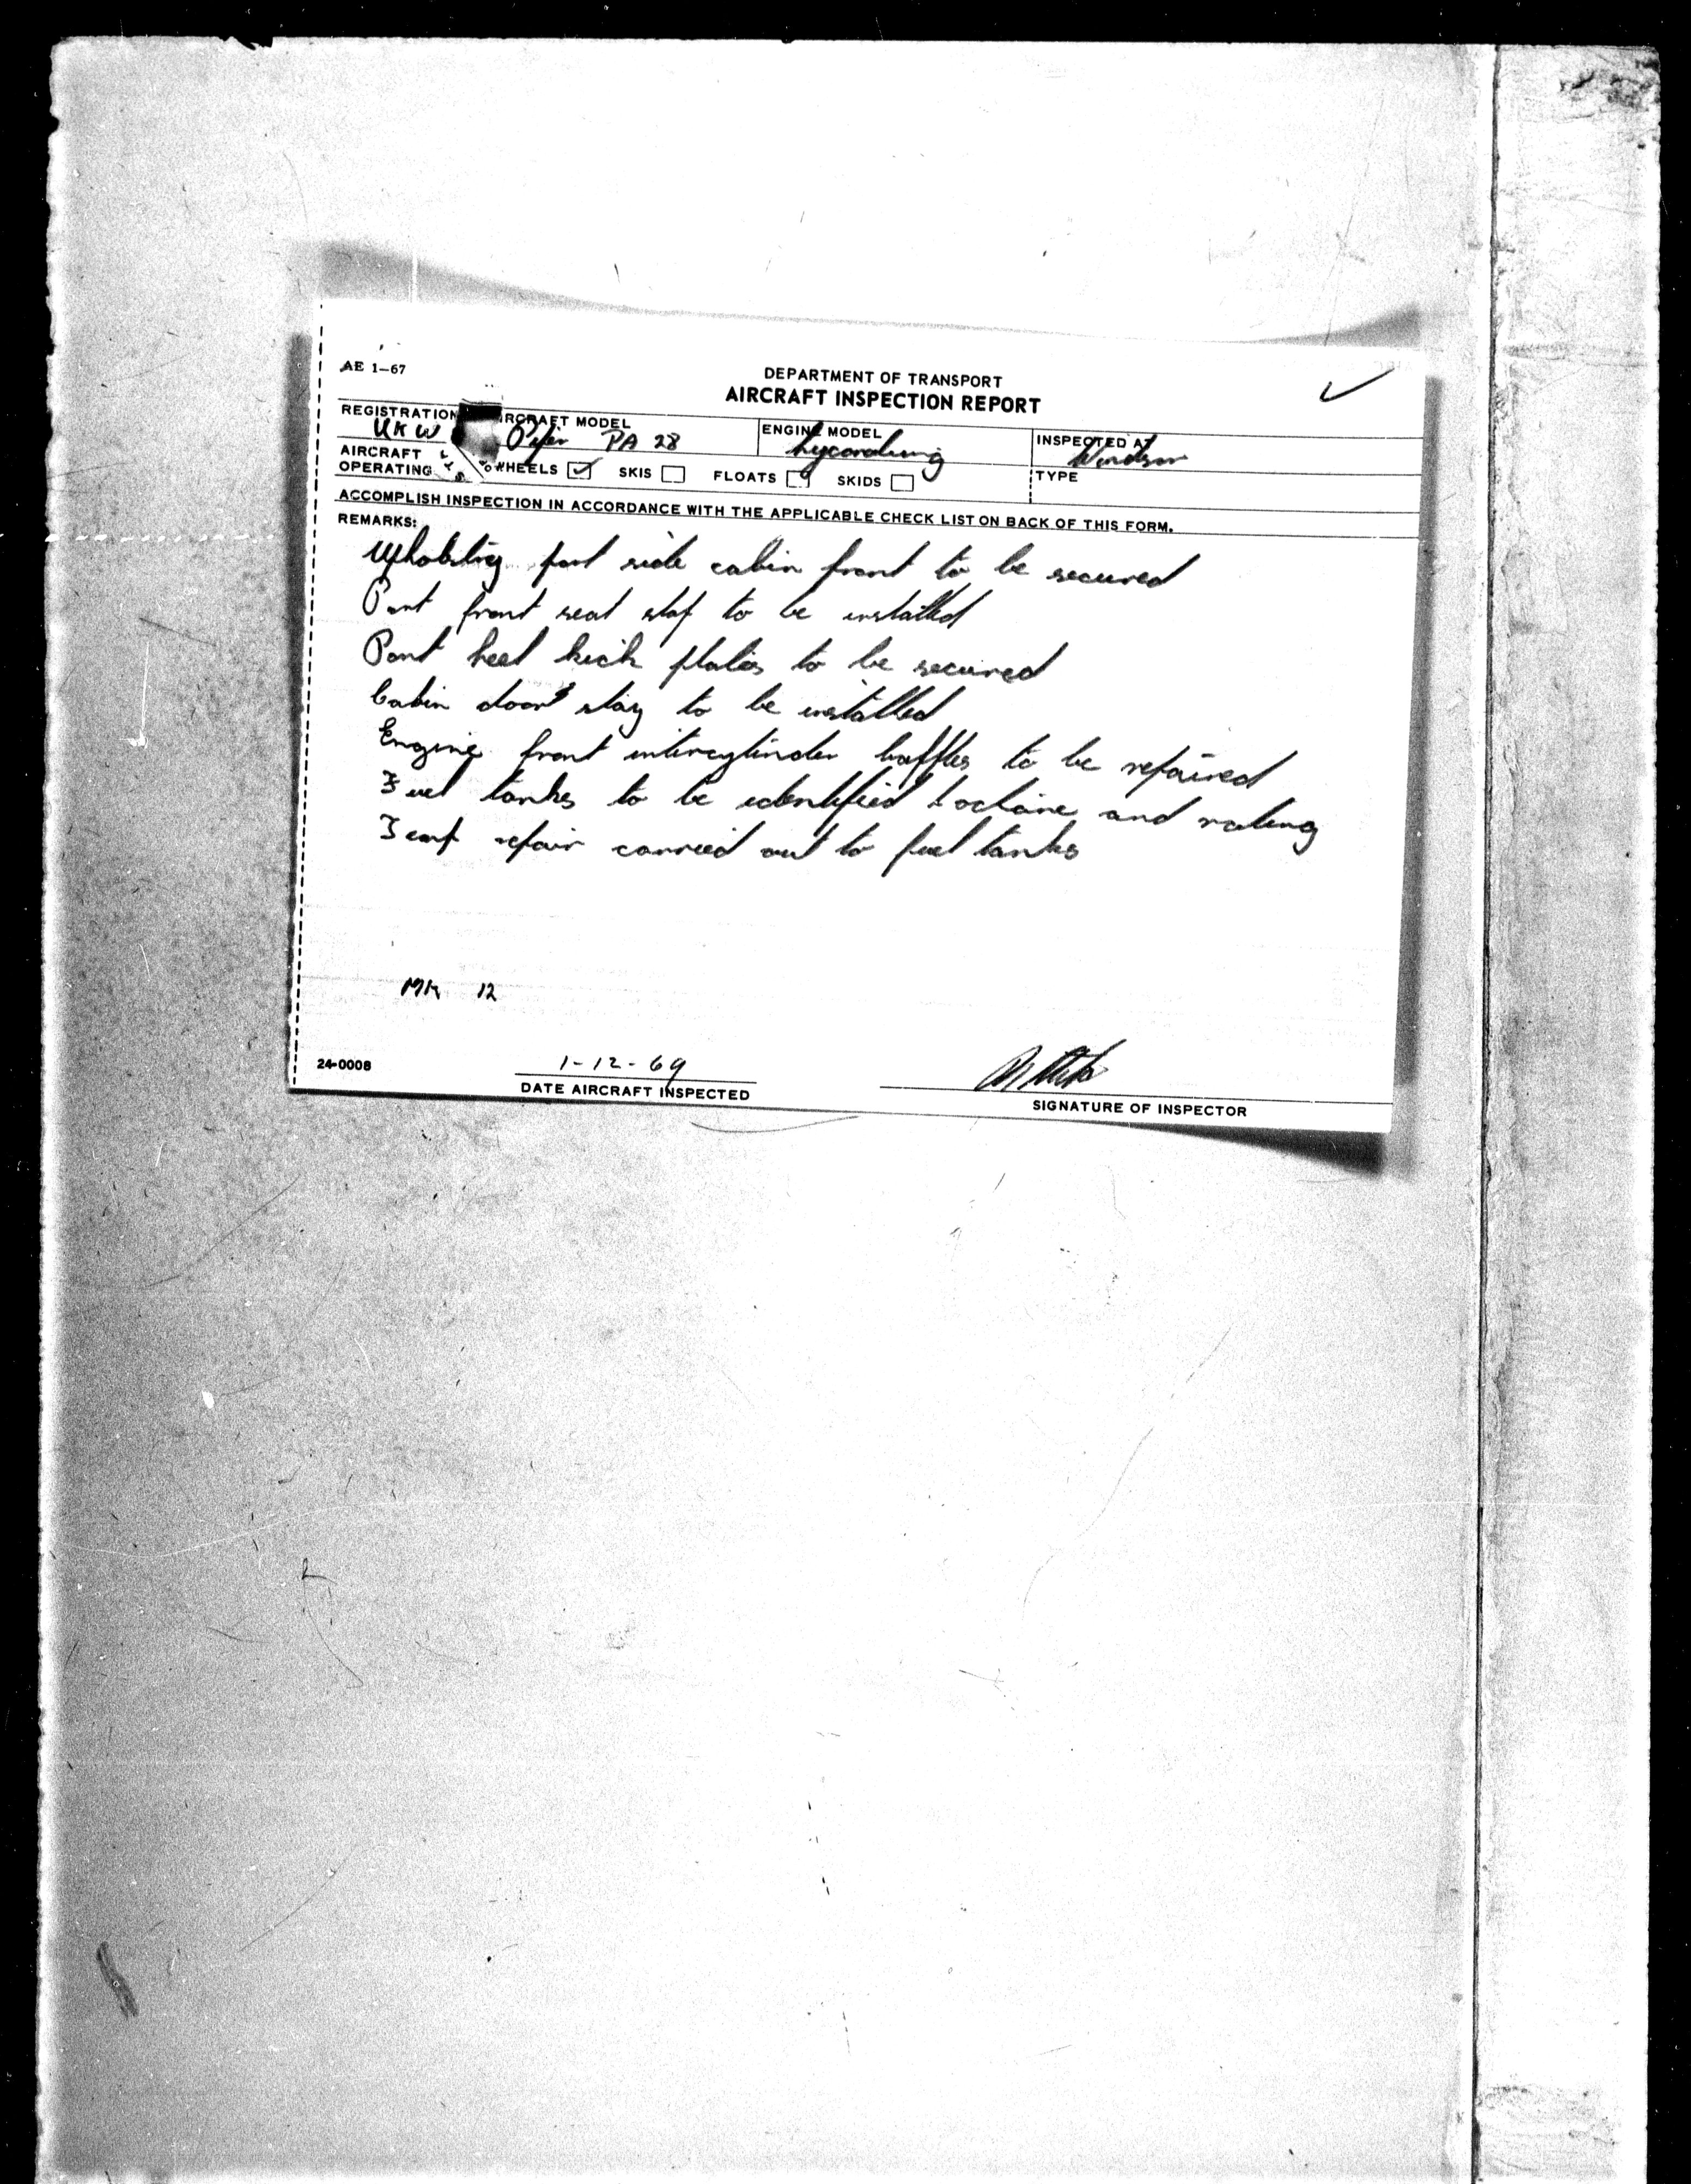 AE 1-67
DEPARTMENT OF TRANSPORT
AIRCRAFT INSPECTION REPORT
REGISTRATION
UKW
RCRAFT MODEL
Piper PA 28
ENGINE MODEL
Lycoming
INSPECTED AT
Windsor
AIRCRAFT OPERATING
WHEELS ☑ SKIS ☐ FLOATS ☐ SKIDS ☐
TYPE
ACCOMPLISH INSPECTION IN ACCORDANCE WITH THE APPLICABLE CHECK LIST ON BACK OF THIS FORM.
REMARKS:
Upholstry port side cabin front to be secured
Port front seat stop to be installed
Port heel kick plates to be secured
Cabin door stay to be installed
Engine front intercylinder baffles to be repaired
Fuel tanks to be identified octaine and rating
repair carried out to fuel tanks
12
24-0008
1-12-69
DATE AIRCRAFT INSPECTED
SIGNATURE OF INSPECTOR